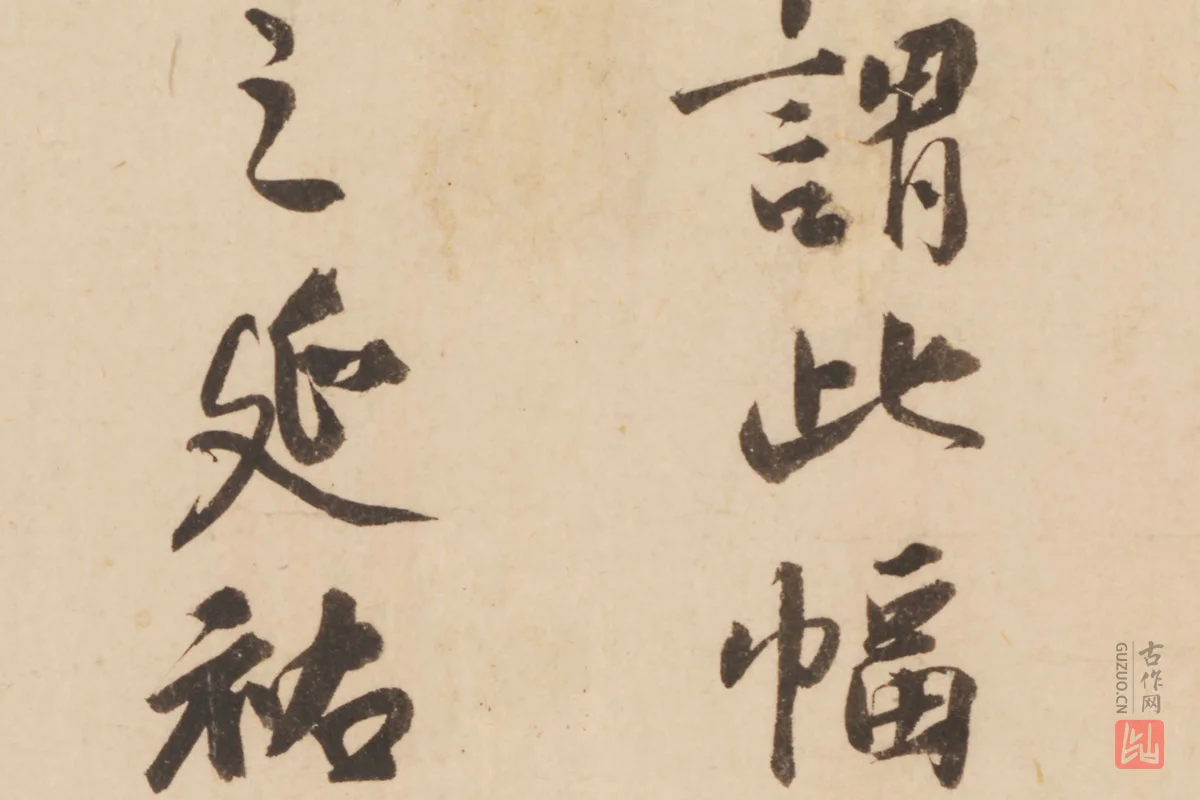 謂此幅
之延祐
古作网
GUZUO.CN